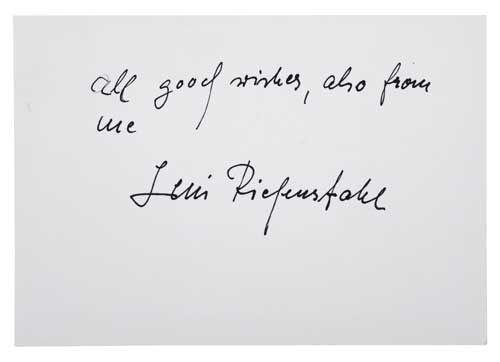 all good wishes, also from
me
Leni Riefenstahl